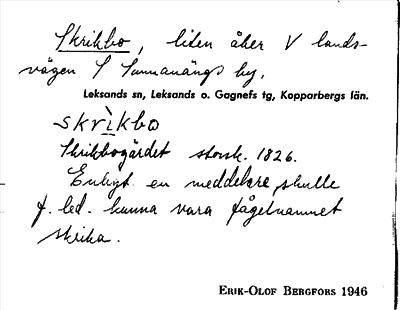 Skrikbo, liten åker V lands-
vägen S Sunnanängs by.
Leksands sn, Leksands o. Gagnefs tg, Kopparbergs län.
skrìkbo
Skrikbogärdet storsk. 1826.
Enligt en meddelare skulle
f. led. kunna vara fågelnamnet
skrika.
ERIK-OLOF BERGFORS 1946